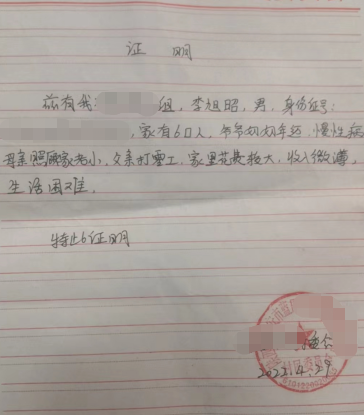 证明
兹有我: 组, 李旭昭, 男, 身份证号:
, 家有6口人, 爷爷奶奶年迈, 慢性病
母亲照顾家老小, 父亲打零工, 家里花费较大, 收入微薄,
生活困难.
特此证明
2022.4.29